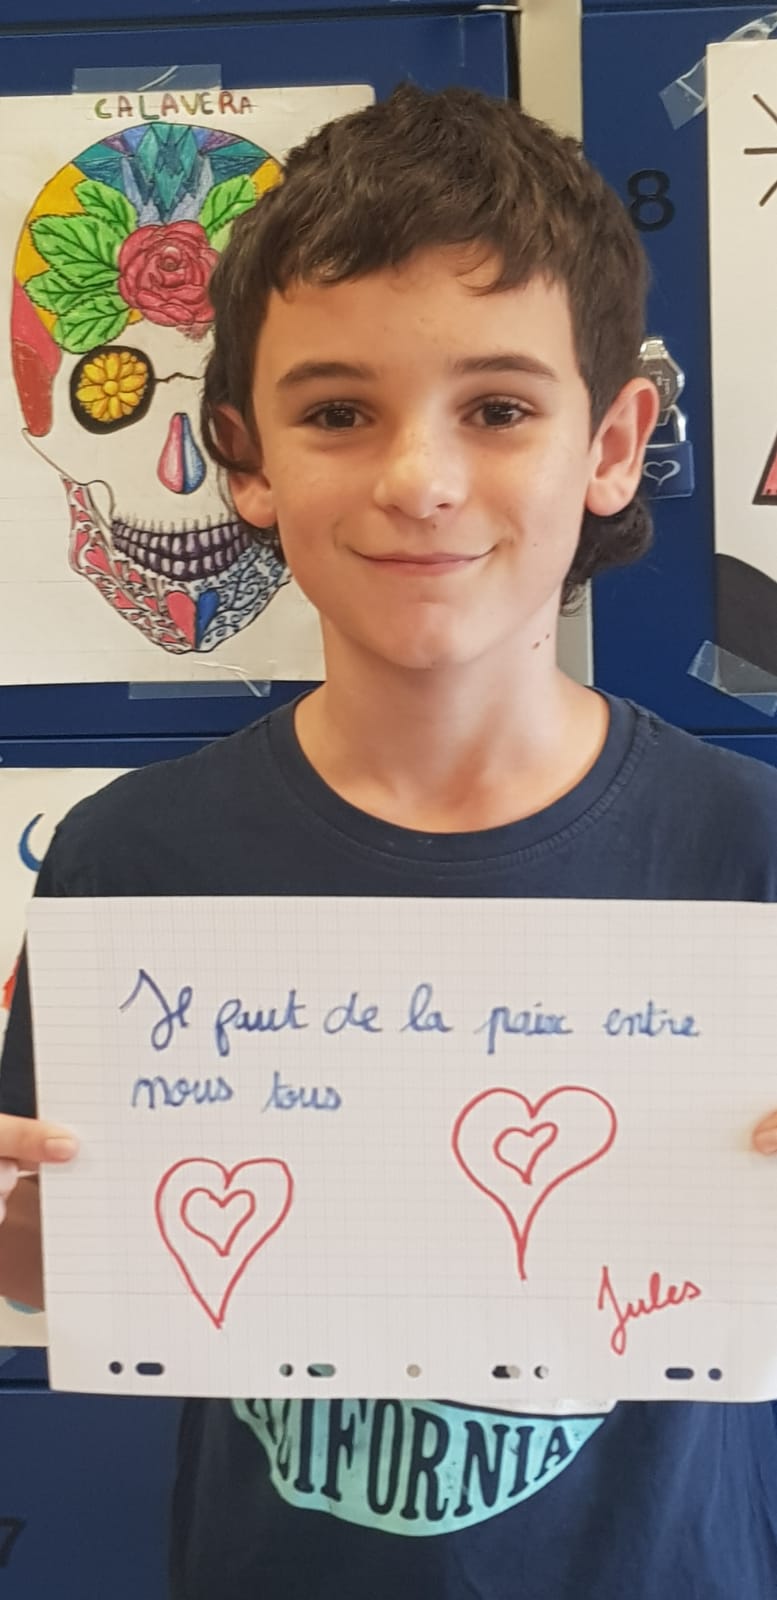 CALAVERA
8
Il faut de la paix entre
nous tous
Jules
LIFORNIA
7